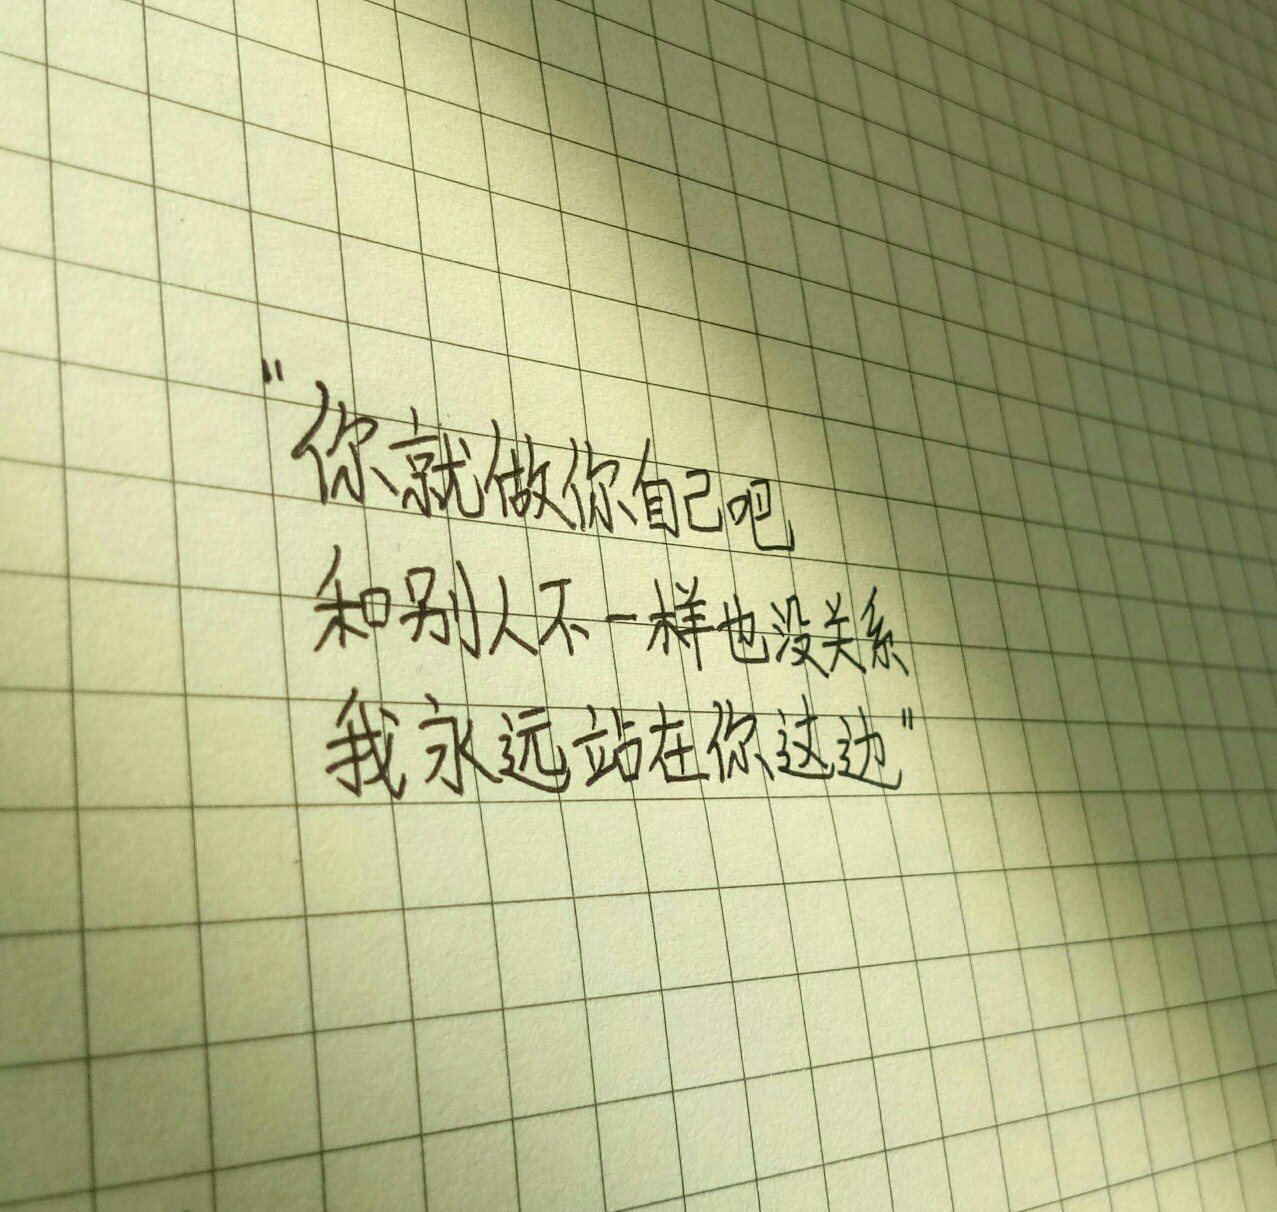 "你就做你自己吧
和别人不一样也没关系
我永远站在你这边"